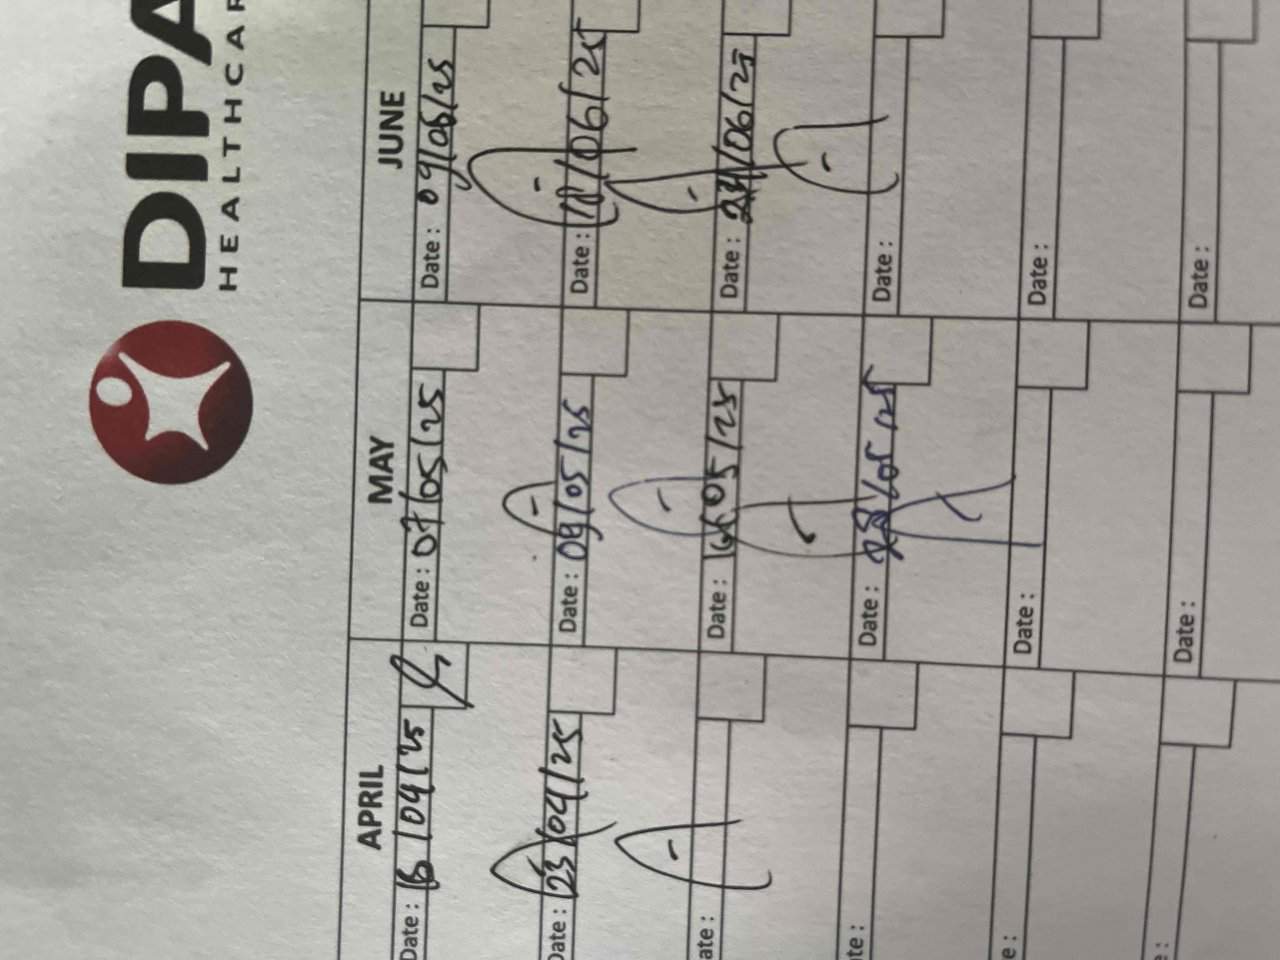 DIPA
HEALTHCAR
APRIL MAY JUNE
Date : 16/04/25 Date : 07/05/25 Date : 09/06/25
Date : 23/04/25 Date : 09/05/25 Date : /06/25
ate : Date : 16/05/25 Date : 24/06/25
te : Date : 28/05/25 Date :
e : Date : Date :
: Date : Date :